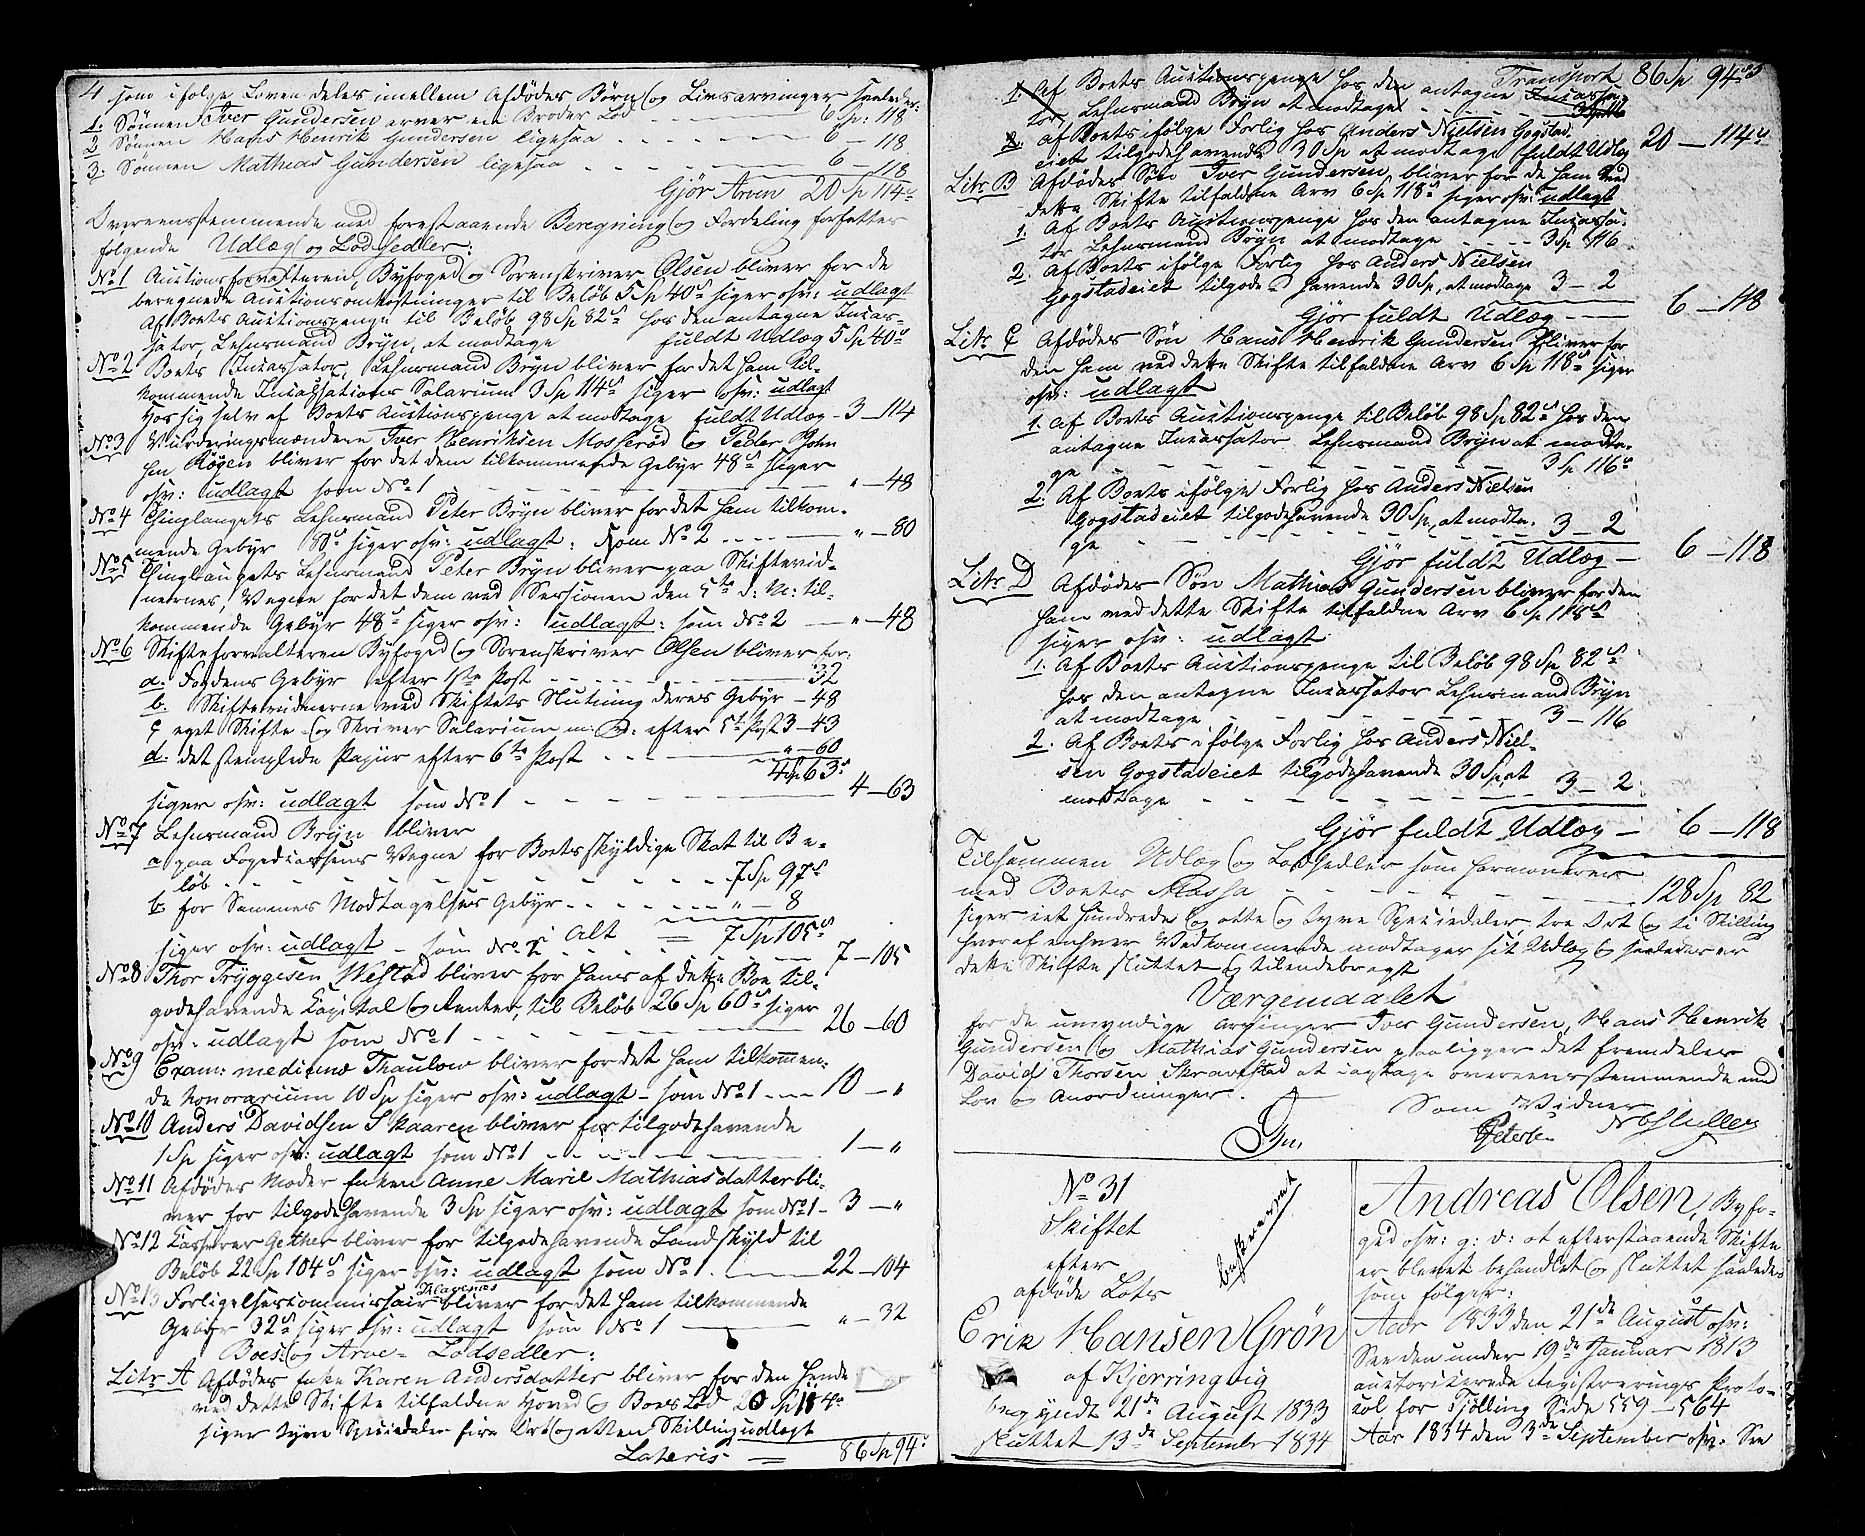 4 som ifølge Loven deles imellem Afdødes Børn og Livsarvinger saaledes:
1. Sønnen Iver Gundersen arver en Broder Lod - - - 6 Sp: 118
2 Sønnen Hans Henrik Gundersen ligesaa - - - 6 - 118
3. Sønnen Mathias Gundersen ligesaa - - - 6 - 118
Gjør Arven 20 Sp 114 s
Overeensstemmende med forestaaende Beregning og Fordeling forfattes
følgende Udlæg og Lodsedler:
No 1 Auctionsforvalteren, Byfoged og Sorenskriver Olsen bliver for de
beregnede Auctionsomkostninger til Beløb 5 Sp 40 s siger osv: udlagt
Af Boets Auctionspenge til Beløb 98 Sp 82 s hos den antagne Incas-
sator, Lehnsmand Bryn, at modtage fuldt Udlæg 5 Sp 40 s
No 2 Boets Incassator, Lehnsmand Bryn bliver for det ham til-
kommende Incassations Salarium 3 Sp 114 s siger osv: udlagt
hos sig selv af Boets Auctionspenge at modtage fuldt Udlæg - 3 - 114
No 3 Vurderingsmændene Iver Henriksen Mosserød og Peder John
sen Røgen bliver for det dem tilkommende Gebyr 48 s siger
osv: udlagt som No 1 - - - " - 48
No 4 Thinglaugets Lehnsmand Peter Bryn bliver for det ham tilkom-
mende Gebyr 80 s siger osv: udlagt: som No 2 - - - " - 80
No 5 Thinglaugets Lehnsmand Peter Bryn bliver paa Skiftevid-
nernes, Vegne for det dem ved Sessionen den 5te d: M: til-
kommende Gebyr 48 s siger osv: udlagt: som No 2 - " - 48
No 6 Skifteforvalteren Byfoged og Sorenskriver Olsen bliver for:
a. Fogdens Gebyr efter 1ste Post - - - 32
b. Skiftevidnerne ved Skiftets Slutning deres Gebyr - 48
c eget Skifte og Skriver Salarium m: v: efter 5te Post 3 - 43
d. det stemplede Papiir efter 6te Post - - - " - 60
4 Sp 63 s
siger osv: udlagt som No 1 - - - 4 - 63
No 7 Lehnsmand Bryn bliver
a paa Fogedcassens Vegne for Boets skyldige Skat til Be-
løb - - - 7 Sp 97 s
b for Sammes Modtagelses Gebyr - - - " - 8
i Alt = 7 Sp 105 s
siger osv: udlagt - som No 2 - - - 7 - 105
No 8 Thor Tryggesen Westad bliver for hans af dette Boe til-
godehavende Kapital og Renter, til Beløb 26 Sp 60 s siger
osv - udlagt som No 1 - - - 26 - 60
No 9 Exam: medicinæ Thaulow bliver for det ham tilkommen-
de honorarium 10 Sp siger osv: udlagt - som No 1 - - - 10 - "
No 10 Anders Davidsen Skaaren bliver for tilgodehavende
1 Sp siger osv: udlagt som No 1 - - - 1 - "
No 11 Afdødes Moder Enken Anne Marie Mathiasdatter bli-
ver for tilgodehavende 3 Sp siger osv: udlagt som No 1 - 3 - "
No 12 Kasserer Gether bliver for tilgodehavende Landskyld til
Beløb 22 Sp 104 s siger osv: udlagt som No 1. - 22 - 104
No 13 Forligelsescommissair Klavenes bliver for det ham tilkommende
Gebyr 32 s siger osv: udlagt som No 1 - " - 32
Boes- og Arve- Lodsedler:
Litr A Afdødes Enke Karen Andersdatter bliver for den hende
ved dette Skifte tilfaldne Hoved og Boes Lod 20 Sp 114 s
siger tyve Speciedaler fire Ort og atten Skilling udlagt
Lateris = 86 Sp 94 s
Transport 86 Sp 94 s
1. Af Boets Auctionspenge hos den antagne Incassa-
tor Lehnsmand Bryn at modtage - - -
2. af Boets ifølge Forlig hos Anders Nielsen Gogstad-
eiet tilgodehavende 30 Sp at modtage fuldt Udlæg 20 - 114 s
Litr B Afdødes Søn Iver Gundersen, bliver for de ham ved
dette Skifte tilfaldne Arv 6 Sp 118 s siger osv: udlagt
1. Af Boets Auctionspenge hos den antagne Incassa-
tor Lehnsmand Bryn at modtage - - - 3 Sp 116 -
2. Af Boets ifølge Forlig hos Anders Nielsen
Gogstadeiet tilgodehavende 30 Sp, at modtage 3 - 2
Gjør fuldt Udlæg - 6 - 118
Litr C Afdødes Søn Hans Henrik Gundersen bliver for
den ham ved dette Skifte tilfaldne Arv 6 Sp 118 s siger
osv: udlagt
1. Af Boets Auctionspenge til Beløb 98 Sp 82 s hos den
antagne Incassator Lehnsmand Bryn at modta-
ge - - - 3 Sp 116 s
2. Af Boets ifølge Forlig hos Anders Nielsen
Gogstadeiet tilgodehavende 30 Sp, at modta-
ge - - - 3 - 2
Gjør fuldt Udlæg - 6 - 118
Litr D Afdødes Søn Mathias Gundersen bliver for den
ham ved dette Skifte tilfaldne Arv 6 Sp 118 s
siger osv: udlagt
1. Af Boets Auctionspenge til Beløb 98 Sp 82 s
hos den antagne Incassator Lehnsmand Bryn
at modtage - - - 3 - 116
2. Af Boets ifølge Forlig hos Anders Niel-
sen Gogstadeiet tilgodehavende 30 Sp, at
modtage - - - 3 - 2
Gjør fuldt Udlæg - 6 - 118
Tilsammen Udlæg og Lodsedler som harmonerer
med Boets Massa - - - 128 Sp 82
siger eet hundrede og otte og tyve Speciedaler, tre Ort og ti Skilling
hvoraf enhver Vedkommende modtager sit Udlæg og saaledes er
dette Skifte sluttet og tilendebragt
Værgemaalet
for de umyndige Arvinger Iver Gundersen, Hans Henrik
Gundersen og Mathias Gundersen paaligger det fremdeles
David Thorsen Skravestad at iagtage overeensstemmende med
Lov og Anordninger.
Som Vidner
No 31
Skiftet
efter
afdøde Lods
Erik Hansen Grøn
af Kjerringvig
begyndt 21de August 1833
sluttet 13de September 1834
beskrevet
Andreas Olsen, Byfo-
ged osv: g: v: at efterstaaende Skifte
er blevet behandlet og sluttet saaledes
som følger:
Aar 1833 den 21de August osv:
See den under 19de Januar 1813
auctoriserede Registrerings Proto-
col for Tjølling Side 559 - 564
Aar 1834 den 3de September osv: See